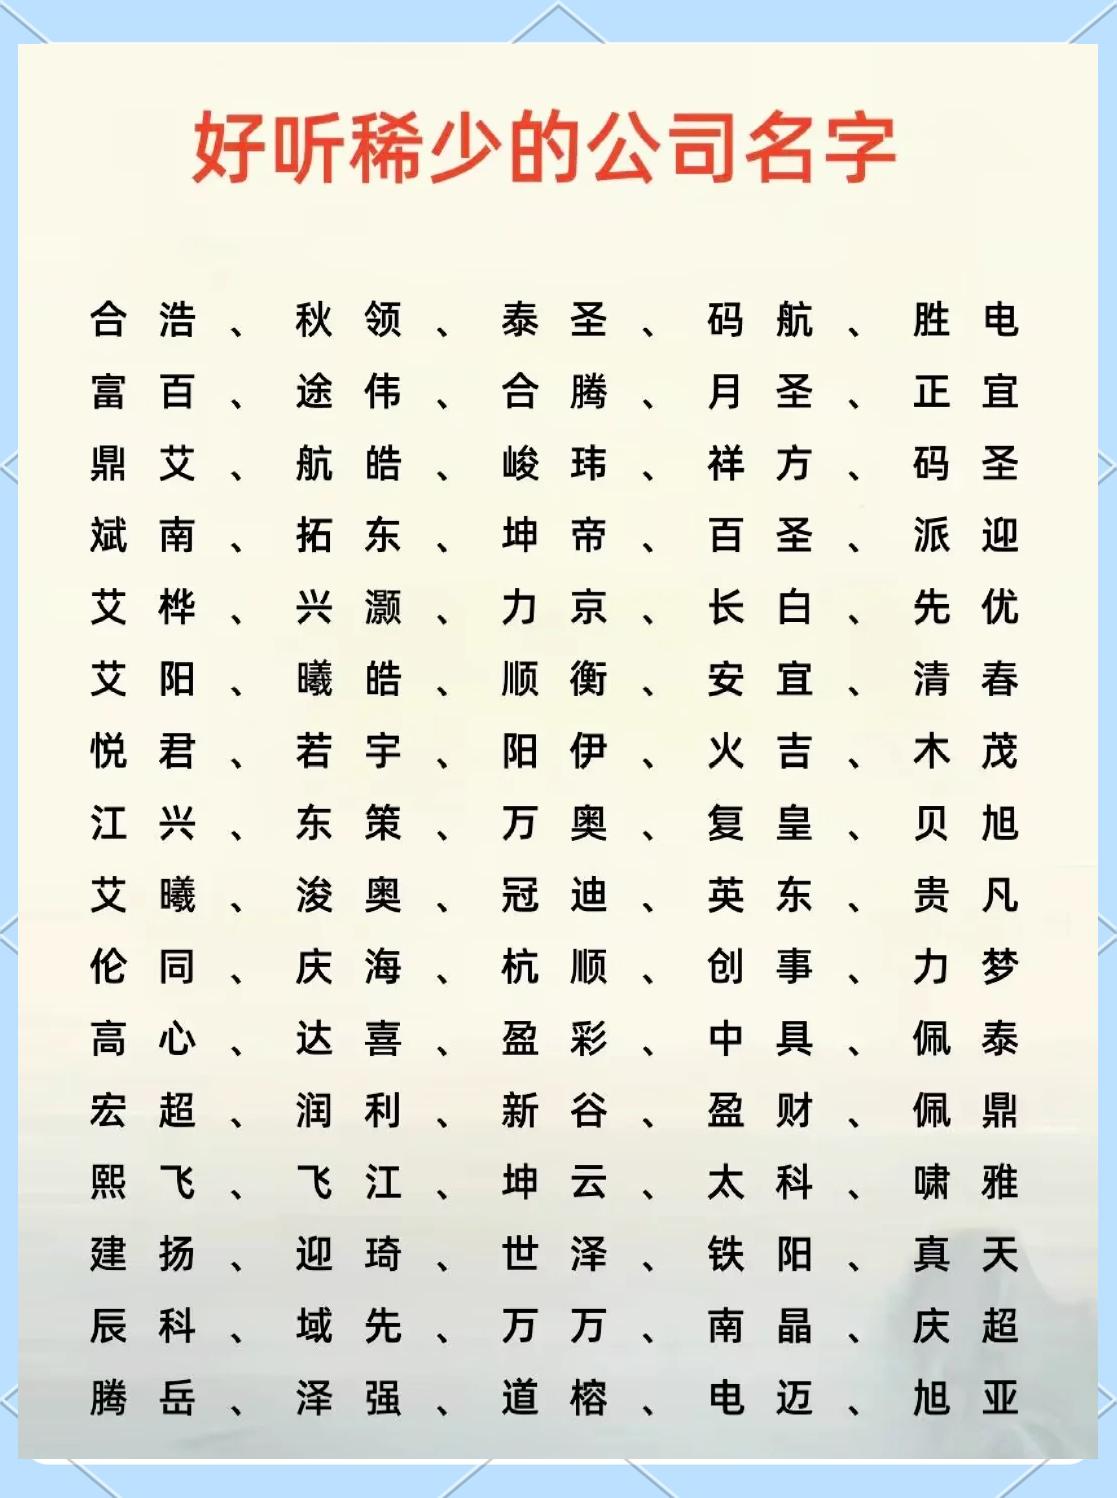 好听稀少的公司名字
合浩、秋领、泰圣、码航、胜电
富百、途伟、合腾、月圣、正宜
鼎艾、航皓、峻玮、祥方、码圣
斌南、拓东、坤帝、百圣、派迎
艾桦、兴灏、力京、长白、先优
艾阳、曦皓、顺衡、安宜、清春
悦君、若宇、阳伊、火吉、木茂
江兴、东策、万奥、复皇、贝旭
艾曦、浚奥、冠迪、英东、贵凡
伦同、庆海、杭顺、创事、力梦
高心、达喜、盈彩、中具、佩泰
宏超、润利、新谷、盈财、佩鼎
熙飞、飞江、坤云、太科、啸雅
建扬、迎琦、世泽、铁阳、真天
辰科、域先、万万、南晶、庆超
腾岳、泽强、道榕、电迈、旭亚